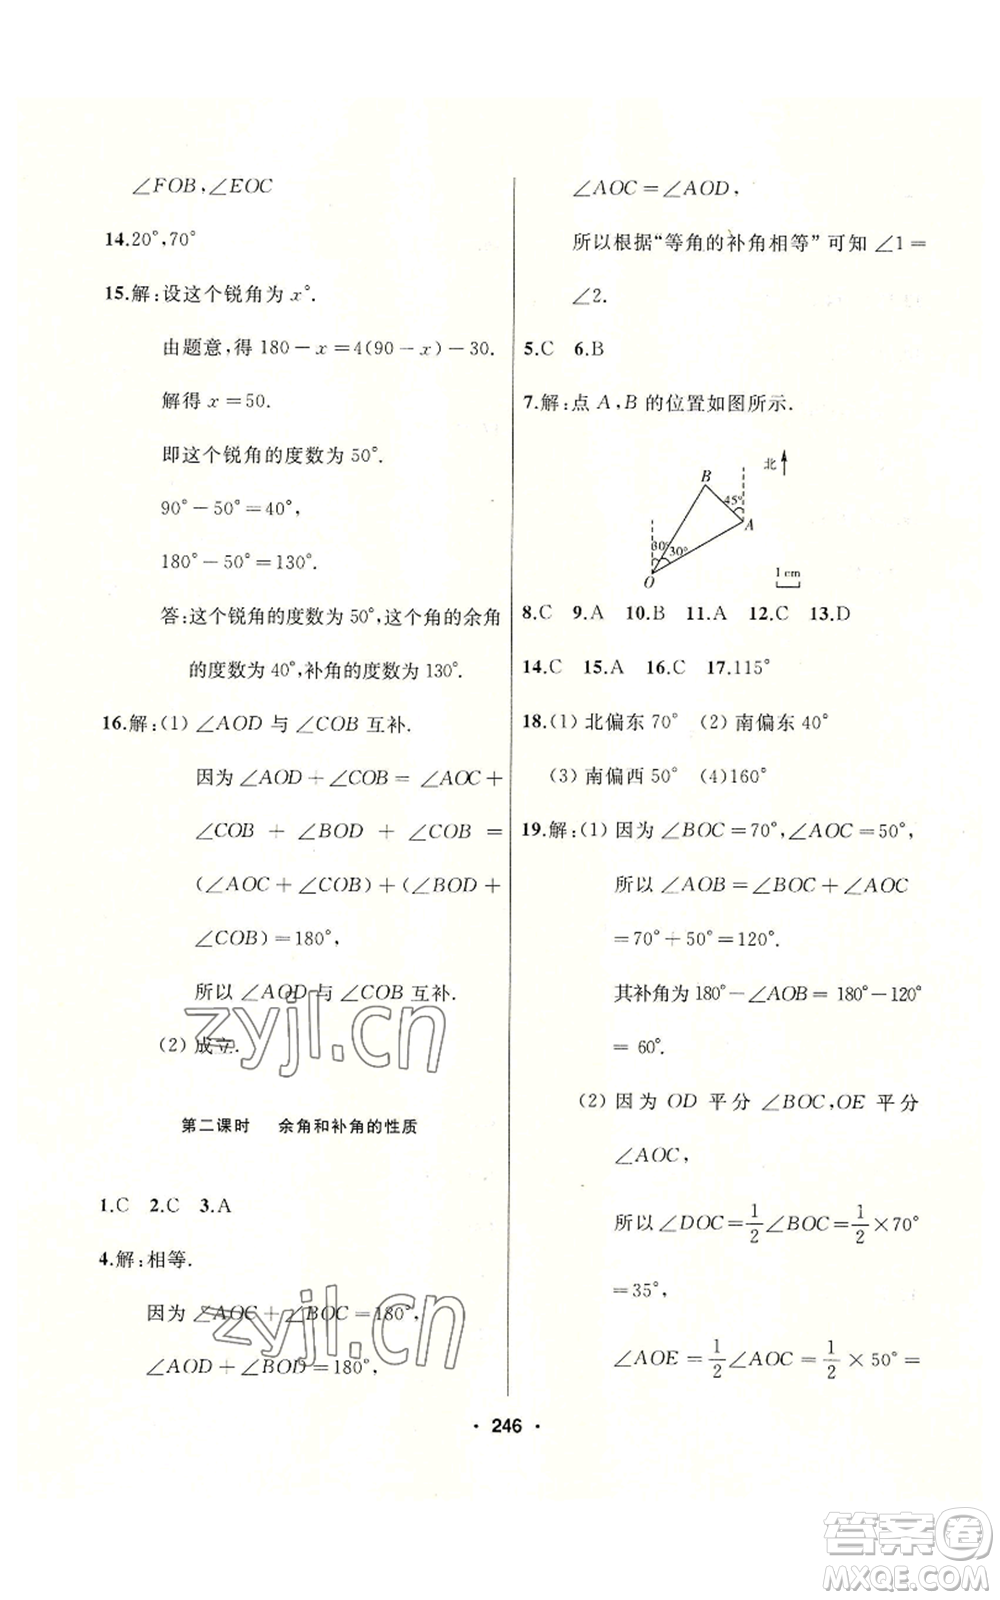 ∠FOB,∠EOC
14.20°,70°
15.解:设这个锐角为 x°.
由题意,得 180－x＝4(90－x)－30.
解得 x＝50.
即这个锐角的度数为 50°.
90°－50°＝40°,
180°－50°＝130°.
答:这个锐角的度数为 50°,这个角的余角
的度数为 40°,补角的度数为 130°.
16.解:(1) ∠AOD 与 ∠COB 互补.
因为 ∠AOD＋∠COB＝∠AOC＋
∠COB＋∠BOD＋∠COB＝
(∠AOC＋∠COB)＋(∠BOD＋
∠COB)＝180°,
所以 ∠AOD 与 ∠COB 互补.
(2) 成立.
第二课时 余角和补角的性质
1.C 2.C 3.A
4.解:相等.
因为 ∠AOC＋∠BOC＝180°,
∠AOD＋∠BOD＝180°,
∠AOC＝∠AOD,
所以根据“等角的补角相等”可知 ∠1＝
∠2.
5.C 6.B
7.解:点 A,B 的位置如图所示.
北
B
45°
A
60°
30°
O
1 cm
8.C 9.A 10.B 11.A 12.C 13.D
14.C 15.A 16.C 17.115°
18.(1) 北偏东 70° (2) 南偏东 40°
(3) 南偏西 50° (4)160°
19.解:(1) 因为 ∠BOC＝70°,∠AOC＝50°,
所以 ∠AOB＝∠BOC＋∠AOC
＝70°＋50°＝120°.
其补角为 180°－∠AOB＝180°－120°
＝60°.
(2) 因为 OD 平分 ∠BOC,OE 平分
∠AOC,
所以 ∠DOC＝1/2∠BOC＝1/2×70°
＝35°,
∠AOE＝1/2∠AOC＝1/2×50°＝
· 246 ·
zyjl.cn
zyjl.cn
答案圈
MXQE.COM